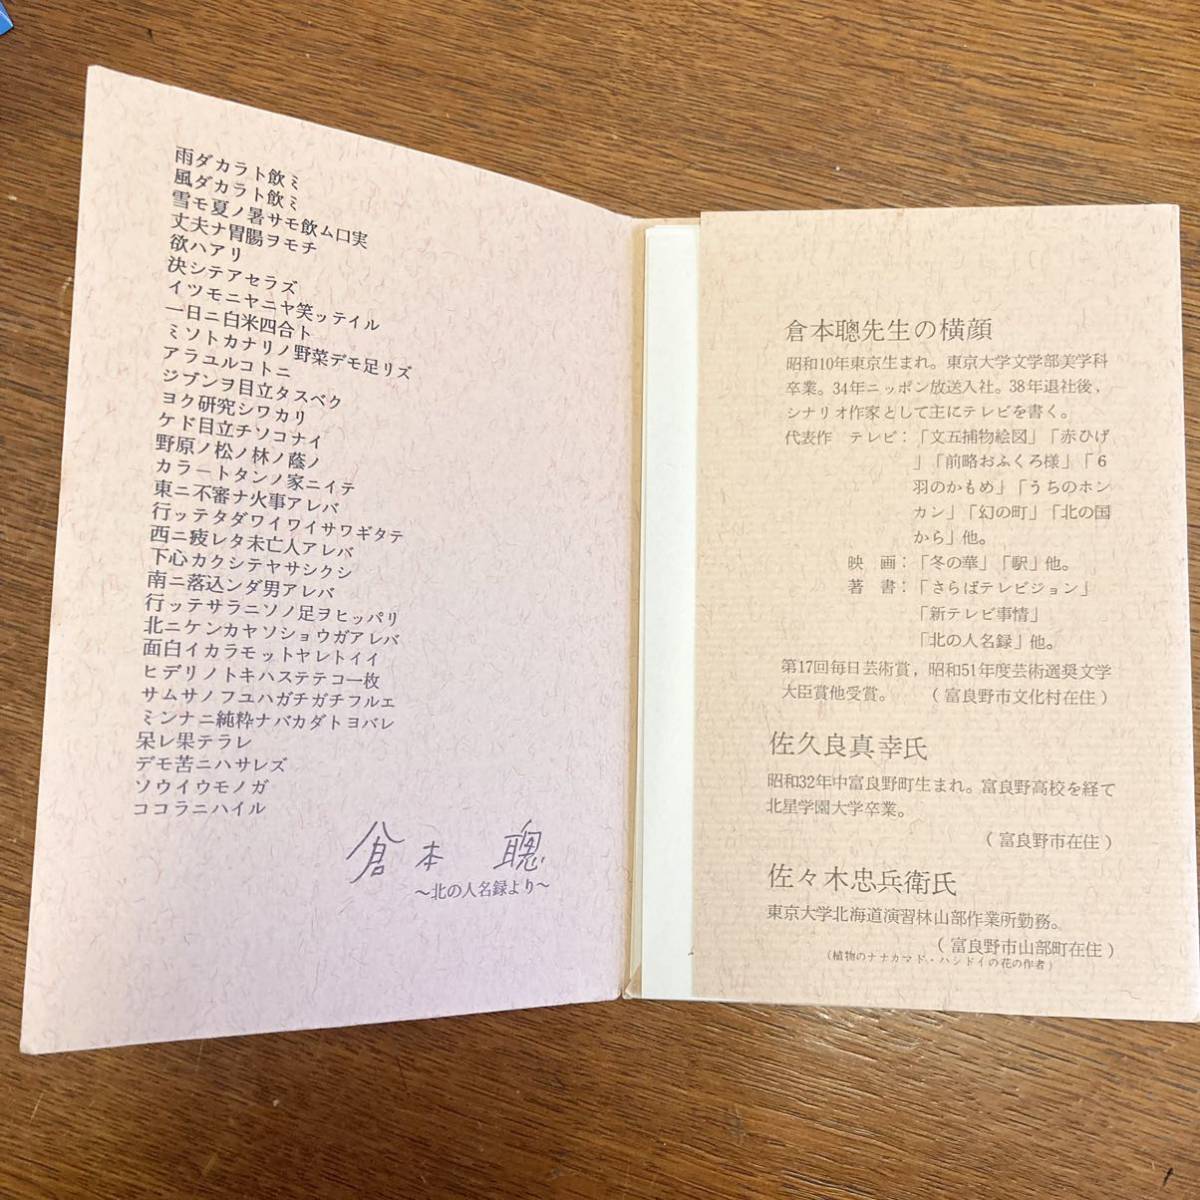 雨ダカラト飲ミ
風ダカラト飲ミ
雪モ夏ノ暑サモ飲ム口実
丈夫ナ胃腸ヲモチ
欲ハアリ
決シテアセラズ
イツモニヤニヤ笑ッテイル
一日ニ白米四合ト
ミソトカナリノ野菜デモ足リズ
アラユルコトニ
ジブンヲ目立タスベク
ヨク研究シワカリ
ケド目立チソコナイ
野原ノ松ノ林ノ蔭ノ
カラートタンノ家ニイテ
東ニ不審ナ火事アレバ
行ッテタダワイワイサワギタテ
西ニ疲レタ未亡人アレバ
下心カクシテヤサシクシ
南ニ落込ンダ男アレバ
行ッテサラニソノ足ヲヒッパリ
北ニケンカヤソショウガアレバ
面白イカラモットヤレトイイ
ヒデリノトキハステテコ一枚
サムサノフユハガチガチフルエ
ミンナニ純粋ナバカダトヨバレ
呆レ果テラレ
デモ苦ニハサレズ
ソウイウモノガ
ココラニハイル
倉本 聰
～北の人名録より～
倉本聰先生の横顔
昭和10年東京生まれ。東京大学文学部美学科
卒業。34年ニッポン放送入社。38年退社後，
シナリオ作家として主にテレビを書く。
代表作 テレビ：「文五捕物絵図」「赤ひげ
」「前略おふくろ様」「6
羽のかもめ」「うちのホン
カン」「幻の町」「北の国
から」他。
映 画：「冬の華」「駅」他。
著 書：「さらばテレビジョン」
「新テレビ事情」
「北の人名録」他。
第17回毎日芸術賞，昭和51年度芸術選奨文学
大臣賞他受賞。 （富良野市文化村在住）
佐久良真幸氏
昭和32年中富良野町生まれ。富良野高校を経て
北星学園大学卒業。
（富良野市在住）
佐々木忠兵衛氏
東京大学北海道演習林山部作業所勤務。
（富良野市山部町在住）
（植物のナナカマド・ハシドイの花の作者）